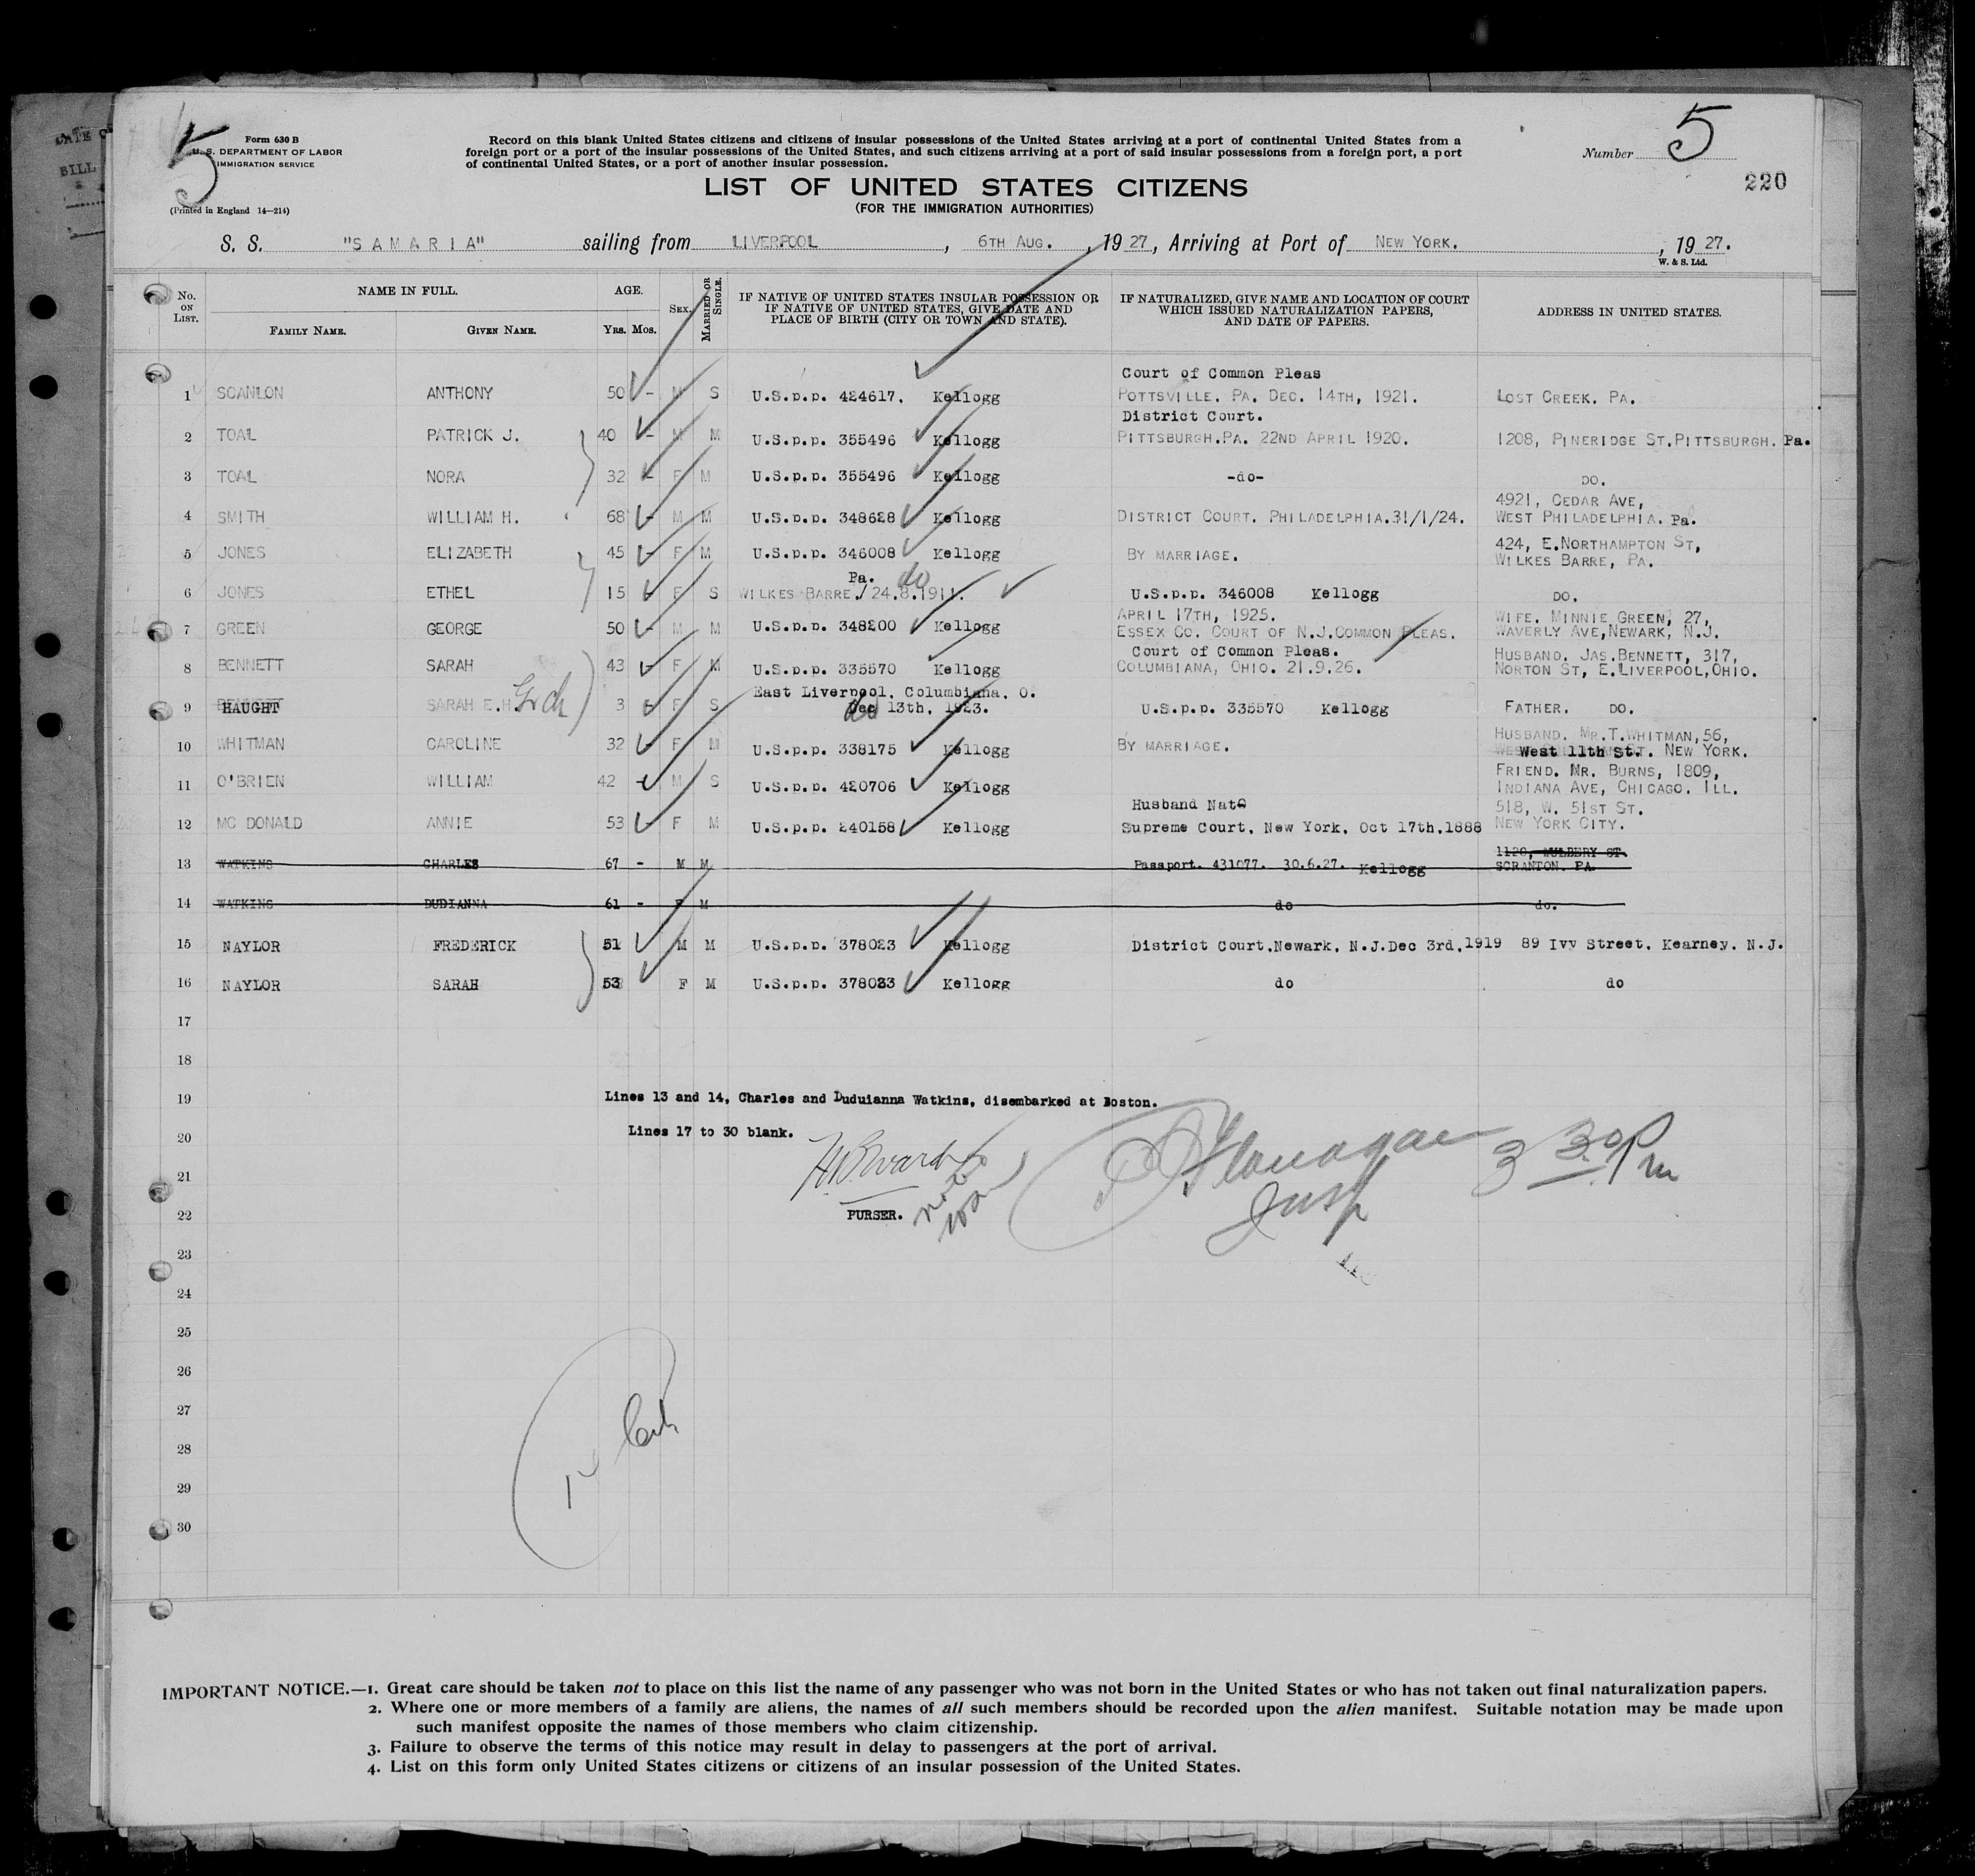 5
Form 630 B
U. S. DEPARTMENT OF LABOR
IMMIGRATION SERVICE
(Printed in England 14—214)
Record on this blank United States citizens and citizens of insular possessions of the United States arriving at a port of continental United States from a
foreign port or a port of the insular possessions of the United States, and such citizens arriving at a port of said insular possessions from a foreign port, a port
of continental United States, or a port of another insular possession.
Number 5
220
LIST OF UNITED STATES CITIZENS
(FOR THE IMMIGRATION AUTHORITIES)
S. S. "SAMARIA" sailing from LIVERPOOL, 6TH AUG., 1927, Arriving at Port of NEW YORK., 1927.
W. & S. Ltd.
No. ON LIST. NAME IN FULL. FAMILY NAME. GIVEN NAME. AGE. Yrs. Mos. SEX. MARRIED OR SINGLE. IF NATIVE OF UNITED STATES INSULAR POSSESSION OR IF NATIVE OF UNITED STATES, GIVE DATE AND PLACE OF BIRTH (CITY OR TOWN AND STATE). IF NATURALIZED, GIVE NAME AND LOCATION OF COURT WHICH ISSUED NATURALIZATION PAPERS, AND DATE OF PAPERS. ADDRESS IN UNITED STATES.
Court of Common Pleas
1 SCANLON ANTHONY 50 - M S U.S.p.p. 424617. Kellogg POTTSVILLE. PA. DEC. 14TH, 1921. LOST CREEK. PA.
District Court.
2 TOAL PATRICK J. 40 - M M U.S.p.p. 355496 Kellogg PITTSBURGH.PA. 22ND APRIL 1920. 1208, PINERIDGE ST.PITTSBURGH. Pa.
3 TOAL NORA 32 - F M U.S.p.p. 355496 Kellogg -do- DO.
4921, CEDAR AVE,
4 SMITH WILLIAM H. 68 - M M U.S.p.p. 348628 Kellogg DISTRICT COURT. PHILADELPHIA.31/1/24. WEST PHILADELPHIA. Pa.
424, E.NORTHAMPTON ST,
5 JONES ELIZABETH 45 - F M U.S.p.p. 346008 Kellogg BY MARRIAGE. WILKES BARRE, PA.
Pa. do
6 JONES ETHEL 15 F S WILKES BARRE / 24.8.1911. U.S.p.p. 346008 Kellogg DO.
APRIL 17TH, 1925. WIFE. MINNIE GREEN, 27,
7 GREEN GEORGE 50 - M M U.S.p.p. 348200 Kellogg ESSEX CO. COURT OF N.J.COMMON PLEAS. WAVERLY AVE,NEWARK, N.J.
Court of Common Pleas. HUSBAND. JAS.BENNETT, 317,
8 BENNETT SARAH 43 - F M U.S.p.p. 335570 Kellogg COLUMBIANA, OHIO. 21.9.26. NORTON ST, E.LIVERPOOL,OHIO.
East Liverpool, Columbiana, O.
9 HAUGHT SARAH E.H. Gr ch 3 F S Dec 13th, 1923. U.S.p.p. 335570 Kellogg FATHER. DO.
HUSBAND. MR.T.WHITMAN,56,
10 WHITMAN CAROLINE 32 - F M U.S.p.p. 338175 Kellogg BY MARRIAGE. West 11th St. NEW YORK.
FRIEND. MR. BURNS, 1809,
11 O'BRIEN WILLIAM 42 M S U.S.p.p. 420706 Kellogg INDIANA AVE, CHICAGO. ILL.
Husband Nat 518, W. 51ST ST.
12 MC DONALD ANNIE 53 - F M U.S.p.p. 240158 Kellogg Supreme Court, New York, Oct 17th,1888 NEW YORK CITY.
1120, MULBERY ST.
13 WATKINS CHARLES 67 - M M Passport. 431077. 30.6.27. Kellogg SCRANTON. PA.
14 WATKINS DUDIANNA 61 - F M do do.
15 NAYLOR FREDERICK 51 M M U.S.p.p. 378023 Kellogg District Court,Newark, N.J.Dec 3rd,1919 89 Ivy Street, Kearney, N.J.
16 NAYLOR SARAH 53 F M U.S.p.p. 378023 Kellogg do do
17
18
19 Lines 13 and 14, Charles and Duduianna Watkins, disembarked at Boston.
20 Lines 17 to 30 blank.
21 Flanagan 3 30 Pm
22 PURSER. Insp
23
24
25
26
27
28
29
30
IMPORTANT NOTICE.—1. Great care should be taken not to place on this list the name of any passenger who was not born in the United States or who has not taken out final naturalization papers.
2. Where one or more members of a family are aliens, the names of all such members should be recorded upon the alien manifest. Suitable notation may be made upon
such manifest opposite the names of those members who claim citizenship.
3. Failure to observe the terms of this notice may result in delay to passengers at the port of arrival.
4. List on this form only United States citizens or citizens of an insular possession of the United States.